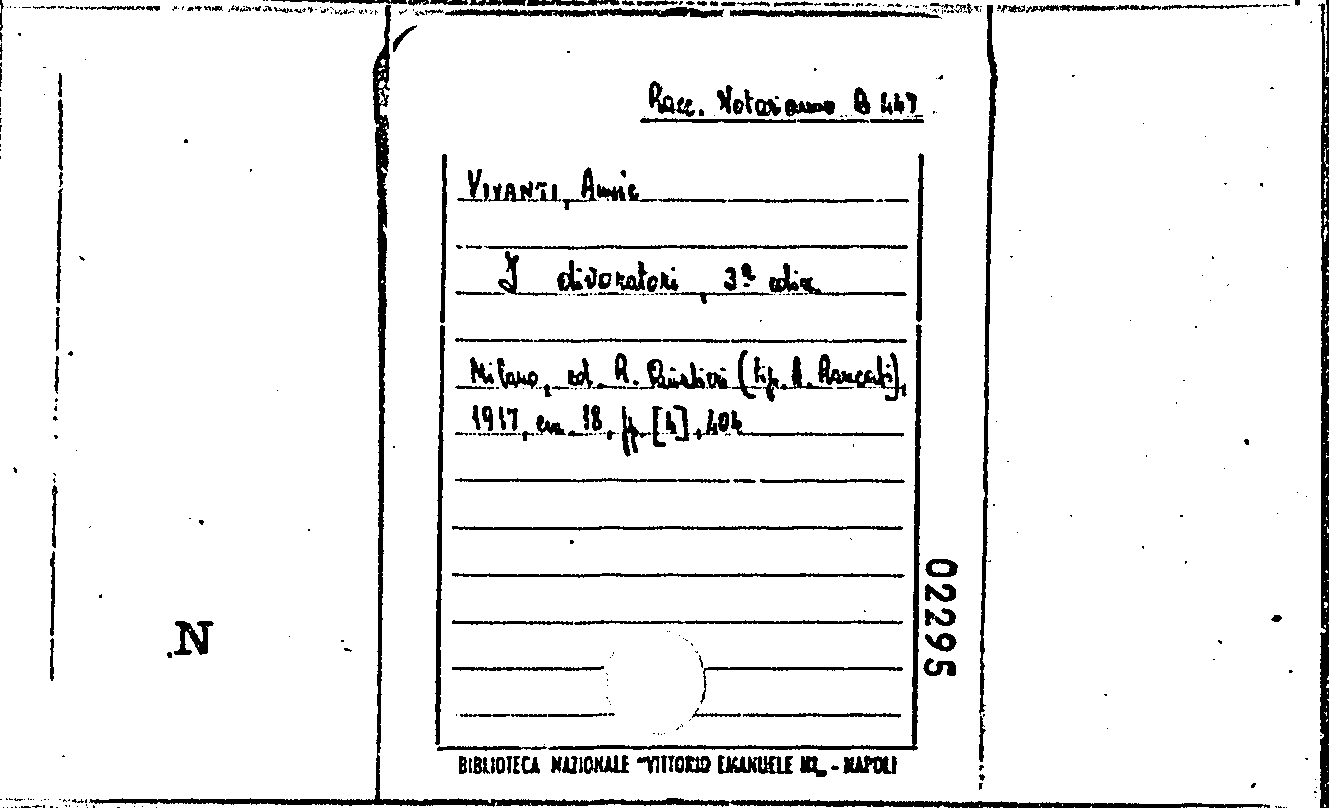 Racc. Notarianno B 447
VIVANTI, Annie
I divoratori, 3ª ediz.
Milano, ed. R. Quintieri (tip. A. Rancati),
1917, cm. 18, pp. [4], 404
02295
N
BIBLIOTECA NAZIONALE "VITTORIO EMANUELE III„ - NAPOLI